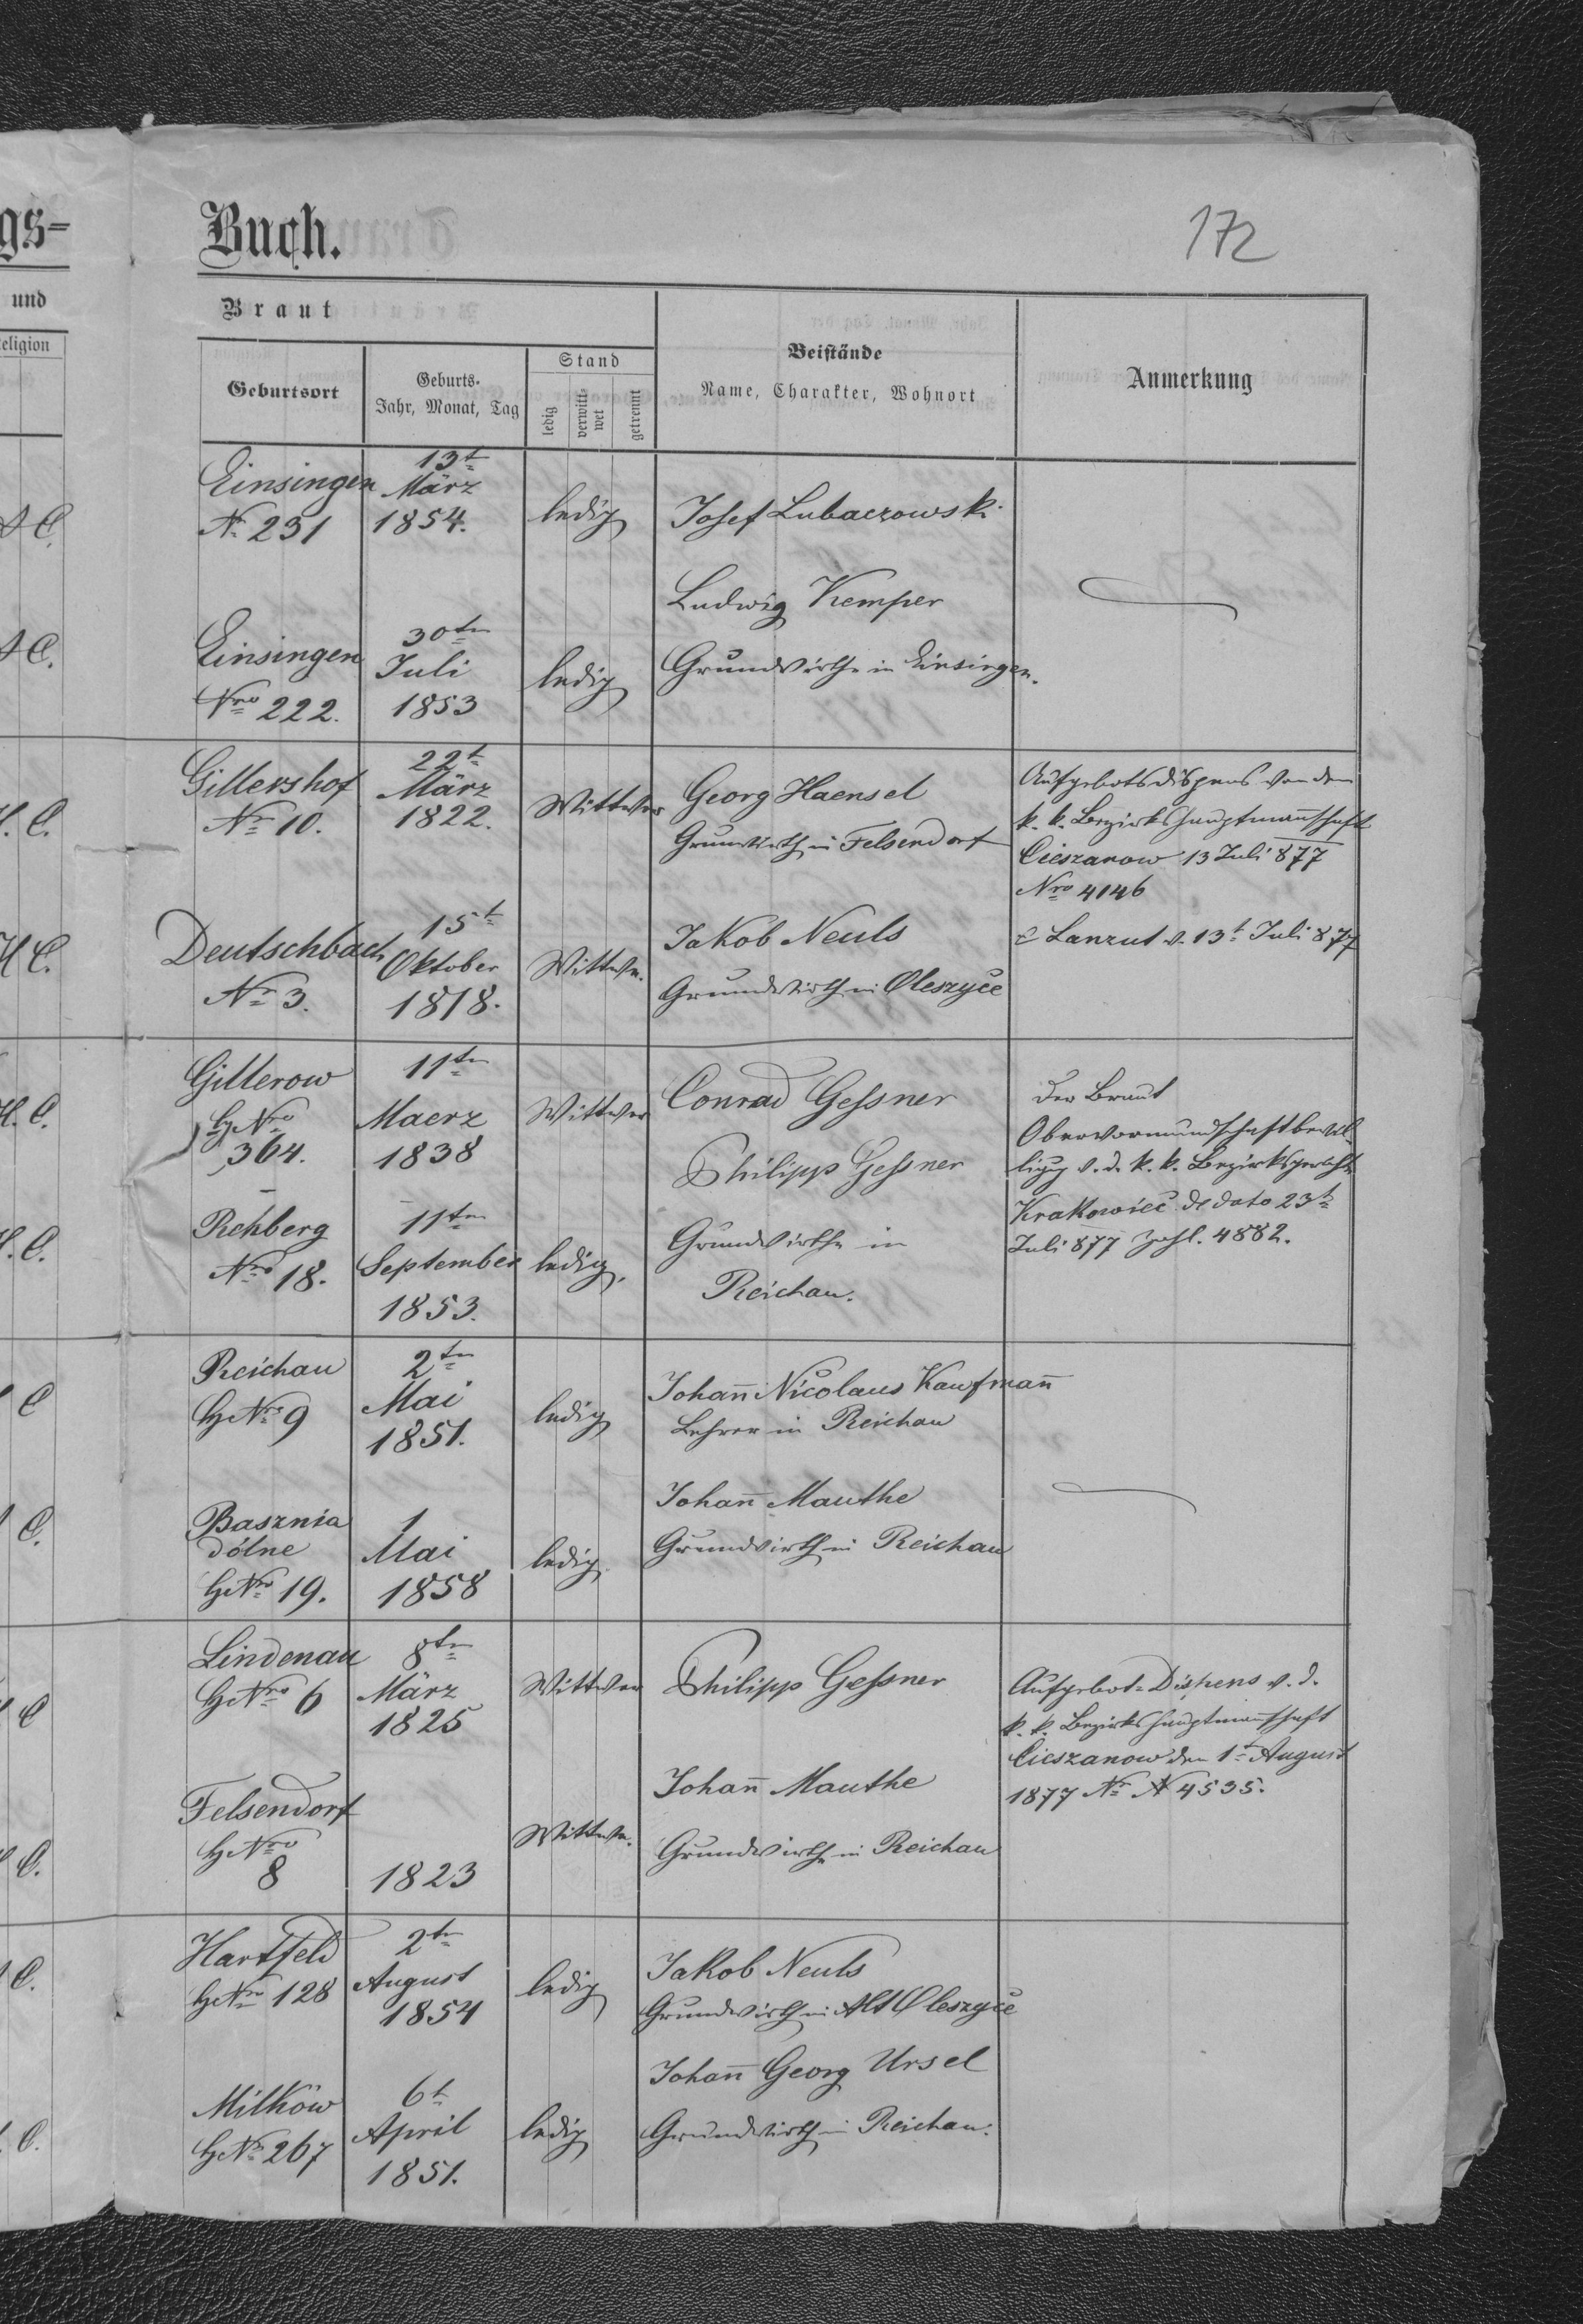 gs=
Buch.
172
und
Braut
Religion
Geburtsort
Geburts-
Jahr, Monat, Tag
Stand
ledig
verwitt-
wet
getrennt
Beistände
Name, Charakter, Wohnort
Anmerkung
A C.
Einsingen
Nr. 231
13t
März
1854.
ledig
Josef Lubaczowski
Ludwig Kemper
A C.
Einsingen
Nro 222.
30ten
Juli
1853
ledig
Grundwirthe in Einsingen.
H. C.
Gillershof
Nr 10.
22t
März
1822.
Wittwer
Georg Haensel
Grundwirth in Felsendorf
Aufgebotsdispens von dem
k. k. Bezirkshauptmannschaft
Cieszanow 13 Juli 877
Nro 4146
H C.
Deutschbach
Nr 3.
15t
Oktober
1818.
Wittwe.
Jakob Neuls
Grundwirth in Oleszyce
Lanzut v. 13t Juli 877
H. C.
Gillerow
HNro
364.
11ten
Maerz
1838
Wittwer
Conrad Gessner
Philipp Gessner
Der Braut
Obervormundschaftbewil-
ligung v. d. k. k. Bezirksgericht
Krakowiec de dato 23t
Juli 877 Zahl. 4882.
H. C.
Rehberg
Nro 18.
11ten
September
1853.
ledig.
Grundwirthe in
Reichau.
C
Reichau
HNro 9
2ten
Mai
1851.
ledig
Johann̄ Nicolaus Kaufman̄
Lehrer in Reichau
C.
Basznia
dólne
HNro 19.
1
Mai
1858
ledig.
Johan̄ Mauthe
Grundwirth in Reichau
C
Lindenau
HNro 6
8ten
März
1825
Wittwer
Philipp Gessner
Aufgebot-Dispens v. d.
k. k. Bezirkshauptmannschaft
Cieszanow den 1t August
1877 Nr N 4535.
C.
Felsendorf
HNro
8
1823
Wittwe.
Johan̄ Mauthe
Grundwirthe in Reichau
C.
Hartfeld
HNro 128
2ten
August
1854
ledig
Jakob Neuls
Grundwirth in Alt Oleszyce
C.
Milków
HNr 267
6t
April
1851.
ledig
Johan̄ Georg Ursel
Grundwirth in Reichau.